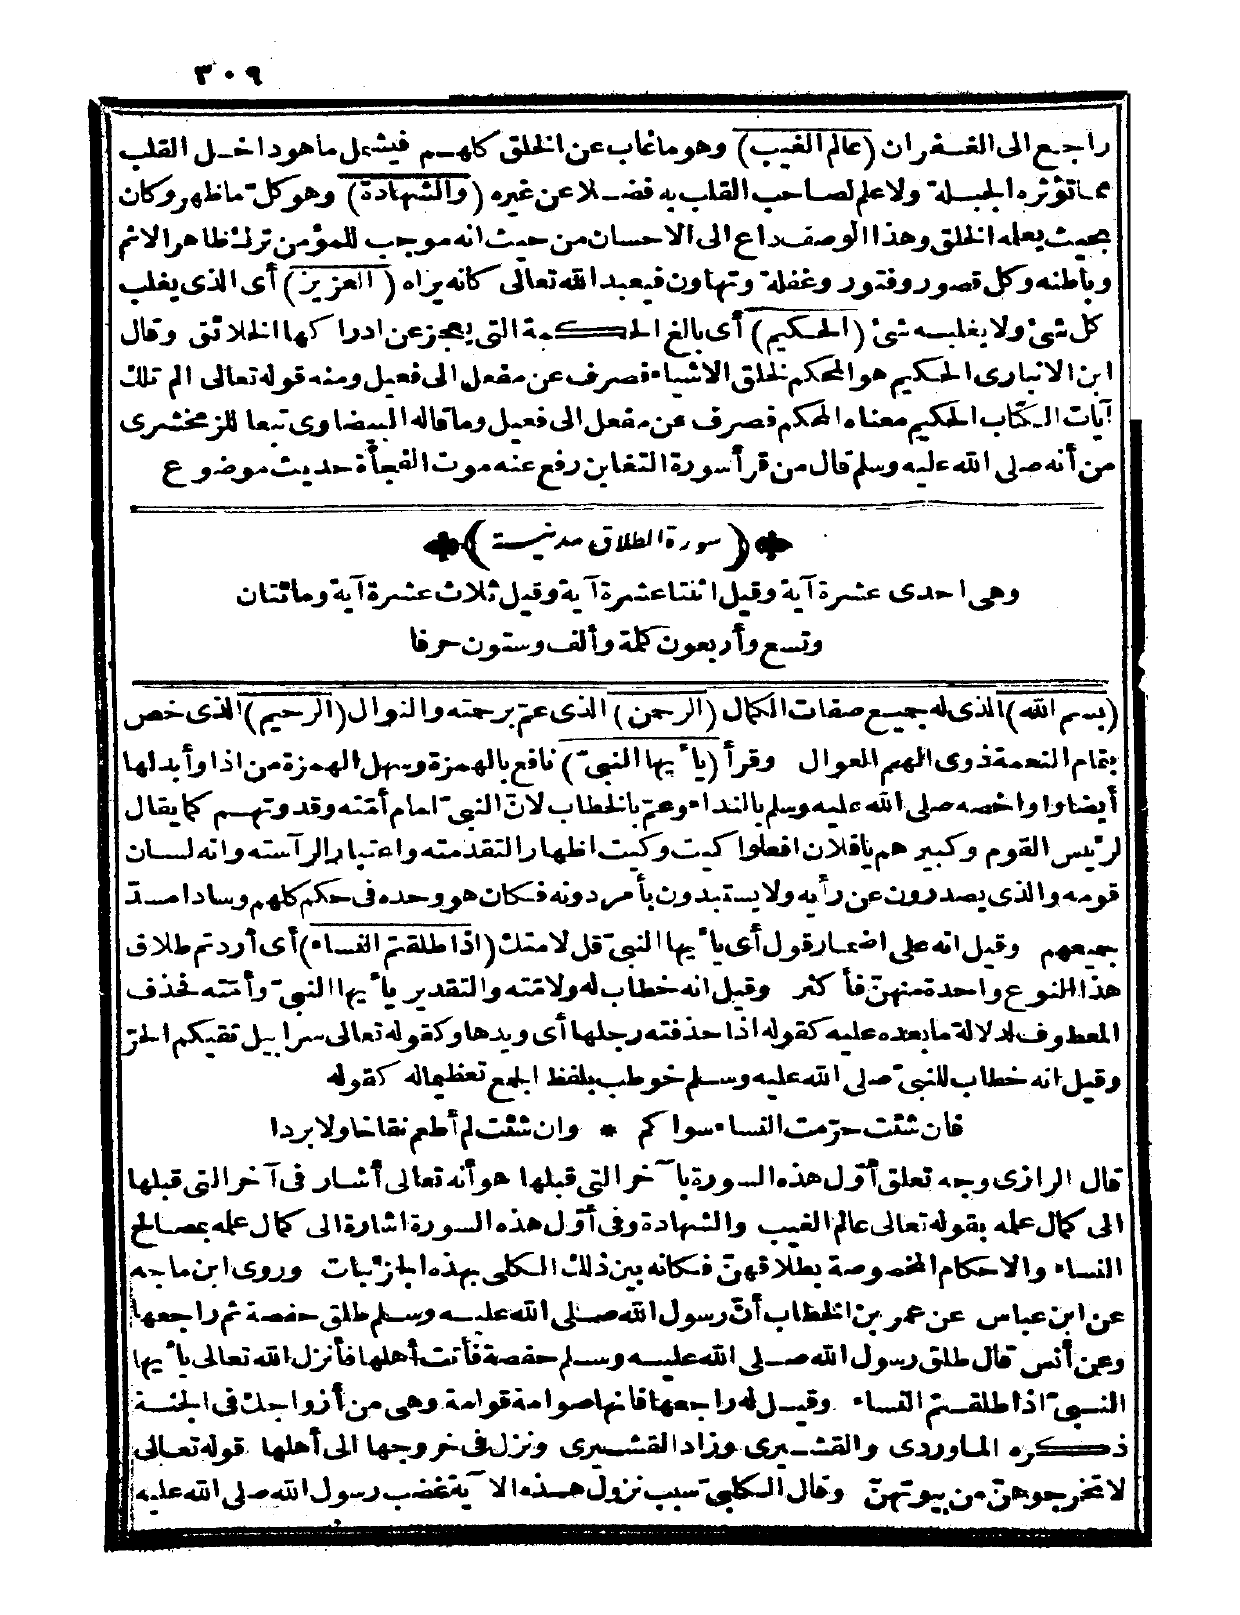 ٣٠٩
راجع الى الغفران (عالم الغيب) وهو ما غاب عن الخلق كلهم فيشمل ما هو داخل القلب
مما تؤثره الجبلة ولا علم لصاحب القلب به فضلا عن غيره (والشهادة) وهو كل ما ظهر وكان
بحيث يعلمه الخلق وهذا الوصف داع الى الاحسان من حيث انه موجب للمؤمن ترك ظاهر الاثم
وباطنه وكل قصور وفتور وغفلة وتهاون فيعبد الله تعالى كانه يراه (العزيز) أى الذى يغلب
كل شئ ولا يغلبه شئ (الحكيم) أى بالغ الحكمة التى يعجز عن ادراكها الخلائق وقال
ابن الانبارى الحكيم هو المحكم لخلق الاشياء فصرف عن مفعل الى فعيل ومنه قوله تعالى الم تلك
آيات الكتاب الحكيم معناه المحكم فصرف عن مفعل الى فعيل وما قاله البيضاوى تبعا للزمخشرى
من أنه صلى الله عليه وسلم قال من قرأ سورة التغابن رفع عنه موت الفجأة حديث موضوع
(سورة الطلاق مدنية)
وهى احدى عشرة آية وقيل اثنتا عشرة آية وقيل ثلاث عشرة آية ومائتان
وتسع وأربعون كلمة وألف وستون حرفا
(بسم الله) الذى له جميع صفات الكمال (الرحمن) الذى عم برحمته والنوال (الرحيم) الذى خص
بتمام النعمة ذوى الهمم العوال وقرأ (يا أيها النبىّ) نافع بالهمزة وسهل الهمزة من اذا وأبدلها
أيضا واوا خصه صلى الله عليه وسلم بالنداء وعمّ بالخطاب لانّ النبىّ امام أمّته وقدوتهم كما يقال
لرئيس القوم وكبيرهم يا فلان افعلوا كيت وكيت اظهارا لتقدمته واعتبارا لرآسته وانه لسان
قومه والذى يصدرون عن رأيه ولا يستبدون بأمر دونه فكان هو وحده فى حكم كلهم وسادا مسدّ
جميعهم وقيل انه على اضمار قول أى يا أيها النبىّ قل لامتك (اذا طلقتم النساء) أى أردتم طلاق
هذا النوع واحدة منهنّ فأكثر وقيل انه خطاب له ولامّته والتقدير يا أيها النبىّ وأمّته فحذف
المعطوف لدلالة ما بعده عليه كقوله اذا حذفته رجلها أى ويدها وكقوله تعالى سرابيل تقيكم الحرّ
وقيل انه خطاب للنبىّ صلى الله عليه وسلم خوطب بلفظ الجمع تعظيما له كقوله
فان شئت حرّمت النساء سواكم * وان شئت لم أطعم نقاخا ولا بردا
قال الرازى وجه تعلق أوّل هذه السورة بآخر التى قبلها هو أنه تعالى أشار فى آخر التى قبلها
الى كمال علمه بقوله تعالى عالم الغيب والشهادة وفى أوّل هذه السورة اشارة الى كمال علمه بمصالح
النساء والاحكام المخصوصة بطلاقهنّ فكانه بين ذلك الكلى بهذه الجزئيات وروى ابن ماجه
عن ابن عباس عن عمر بن الخطاب أنّ رسول الله صلى الله عليه وسلم طلق حفصة ثم راجعها
وعن أنس قال طلق رسول الله صلى الله عليه وسلم حفصة فأتت أهلها فأنزل الله تعالى يا أيها
النبىّ اذا طلقتم النساء وقيل له راجعها فانها صوامة قوامة وهى من أزواجك فى الجنة
ذكره الماوردى والقشيرى وزاد القشيرى ونزل فى خروجها الى أهلها قوله تعالى
لا تخرجوهنّ من بيوتهنّ وقال الكلبى سبب نزول هذه الآية غضب رسول الله صلى الله عليه